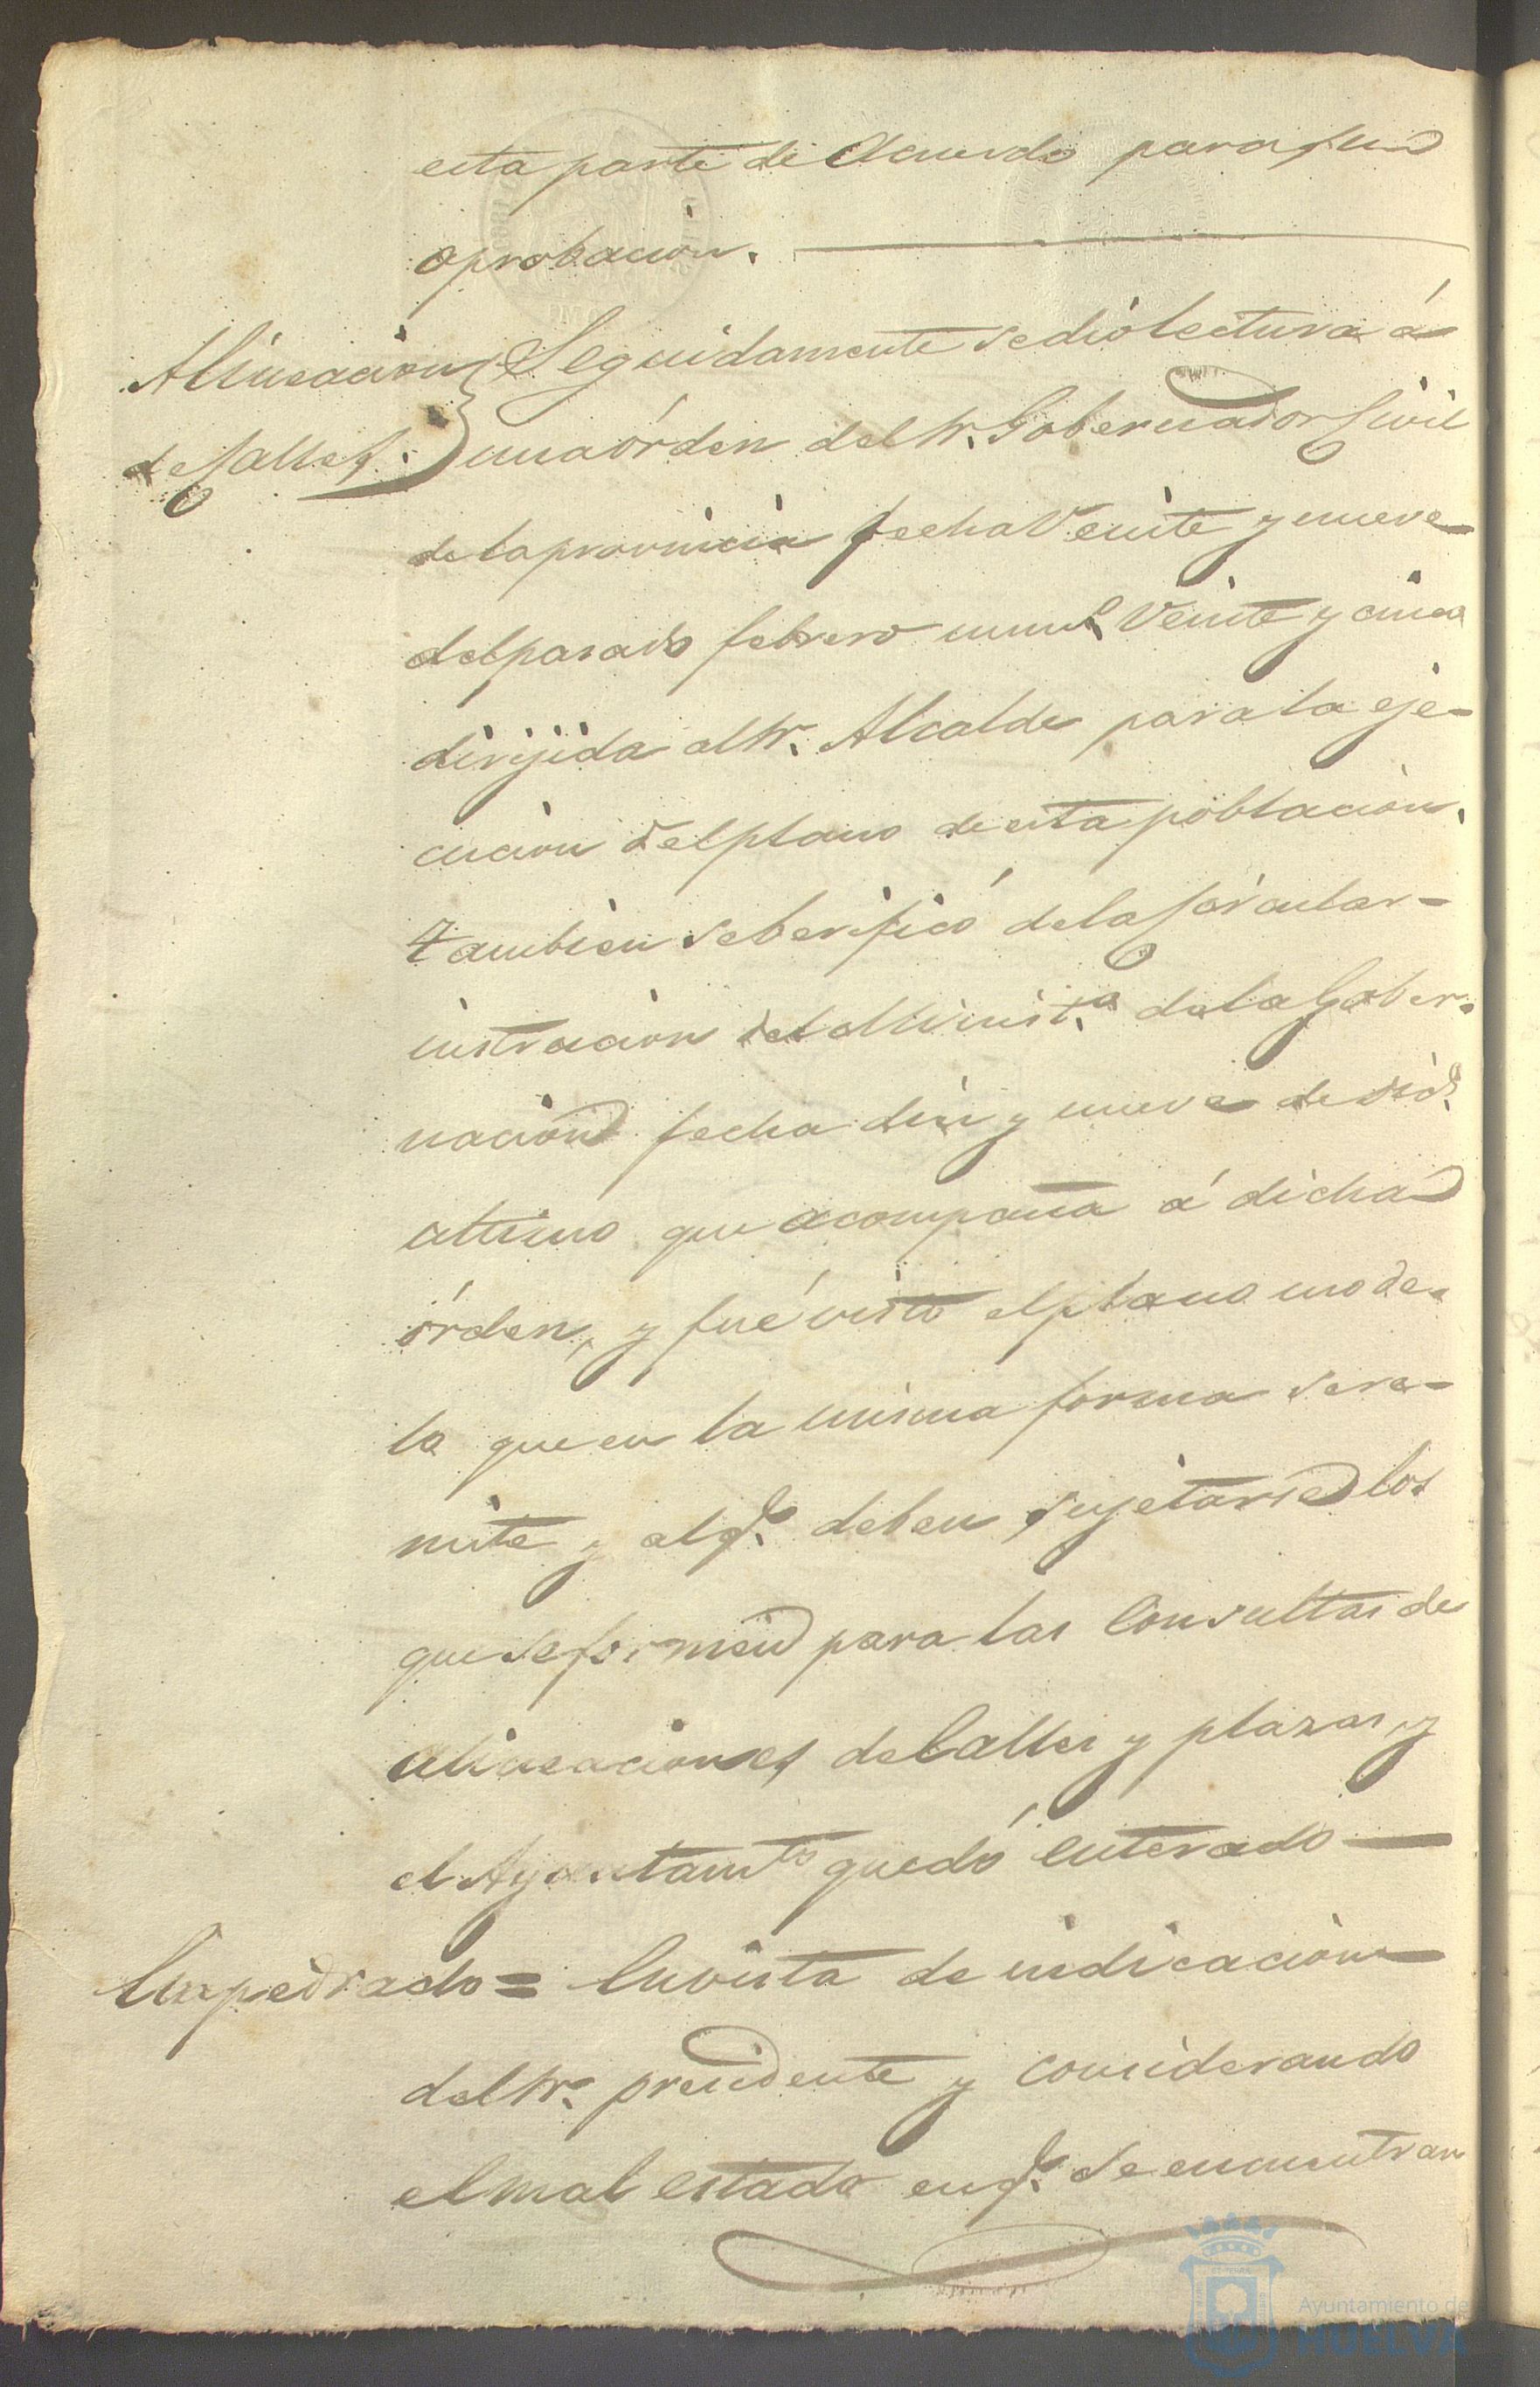 esta parte de Acuerdo para su
aprobacion.
Alineacion
de Calles.
Seguidamente se dió lectura á
una órden del Sr. Gobernador Civil
de la provincia fecha Veinte y nueve
del pasado febrero num.º Veinte y cinco
dirijida al Sr. Alcalde para la eje-
cucion del plano de esta poblacion.
Tambien se berificó de la Circular-
instruccion del Minist.º de la Gober-
nacion fecha diez y nueve de dic.
ultimo que acompaña á dicha
órden, y fué visto el plano mode-
lo que en la misma forma se re-
mite y al q.e deben sujetarse los
que se formen para las Consultas de
alineaciones de Calles y plazas, y
el Ayuntam.to quedó enterado —
Empedrado = En vista de indicacion
del Sr. presidente y considerando
el mal estado en q.e se encuentran
Ayuntamiento de
HUELVA